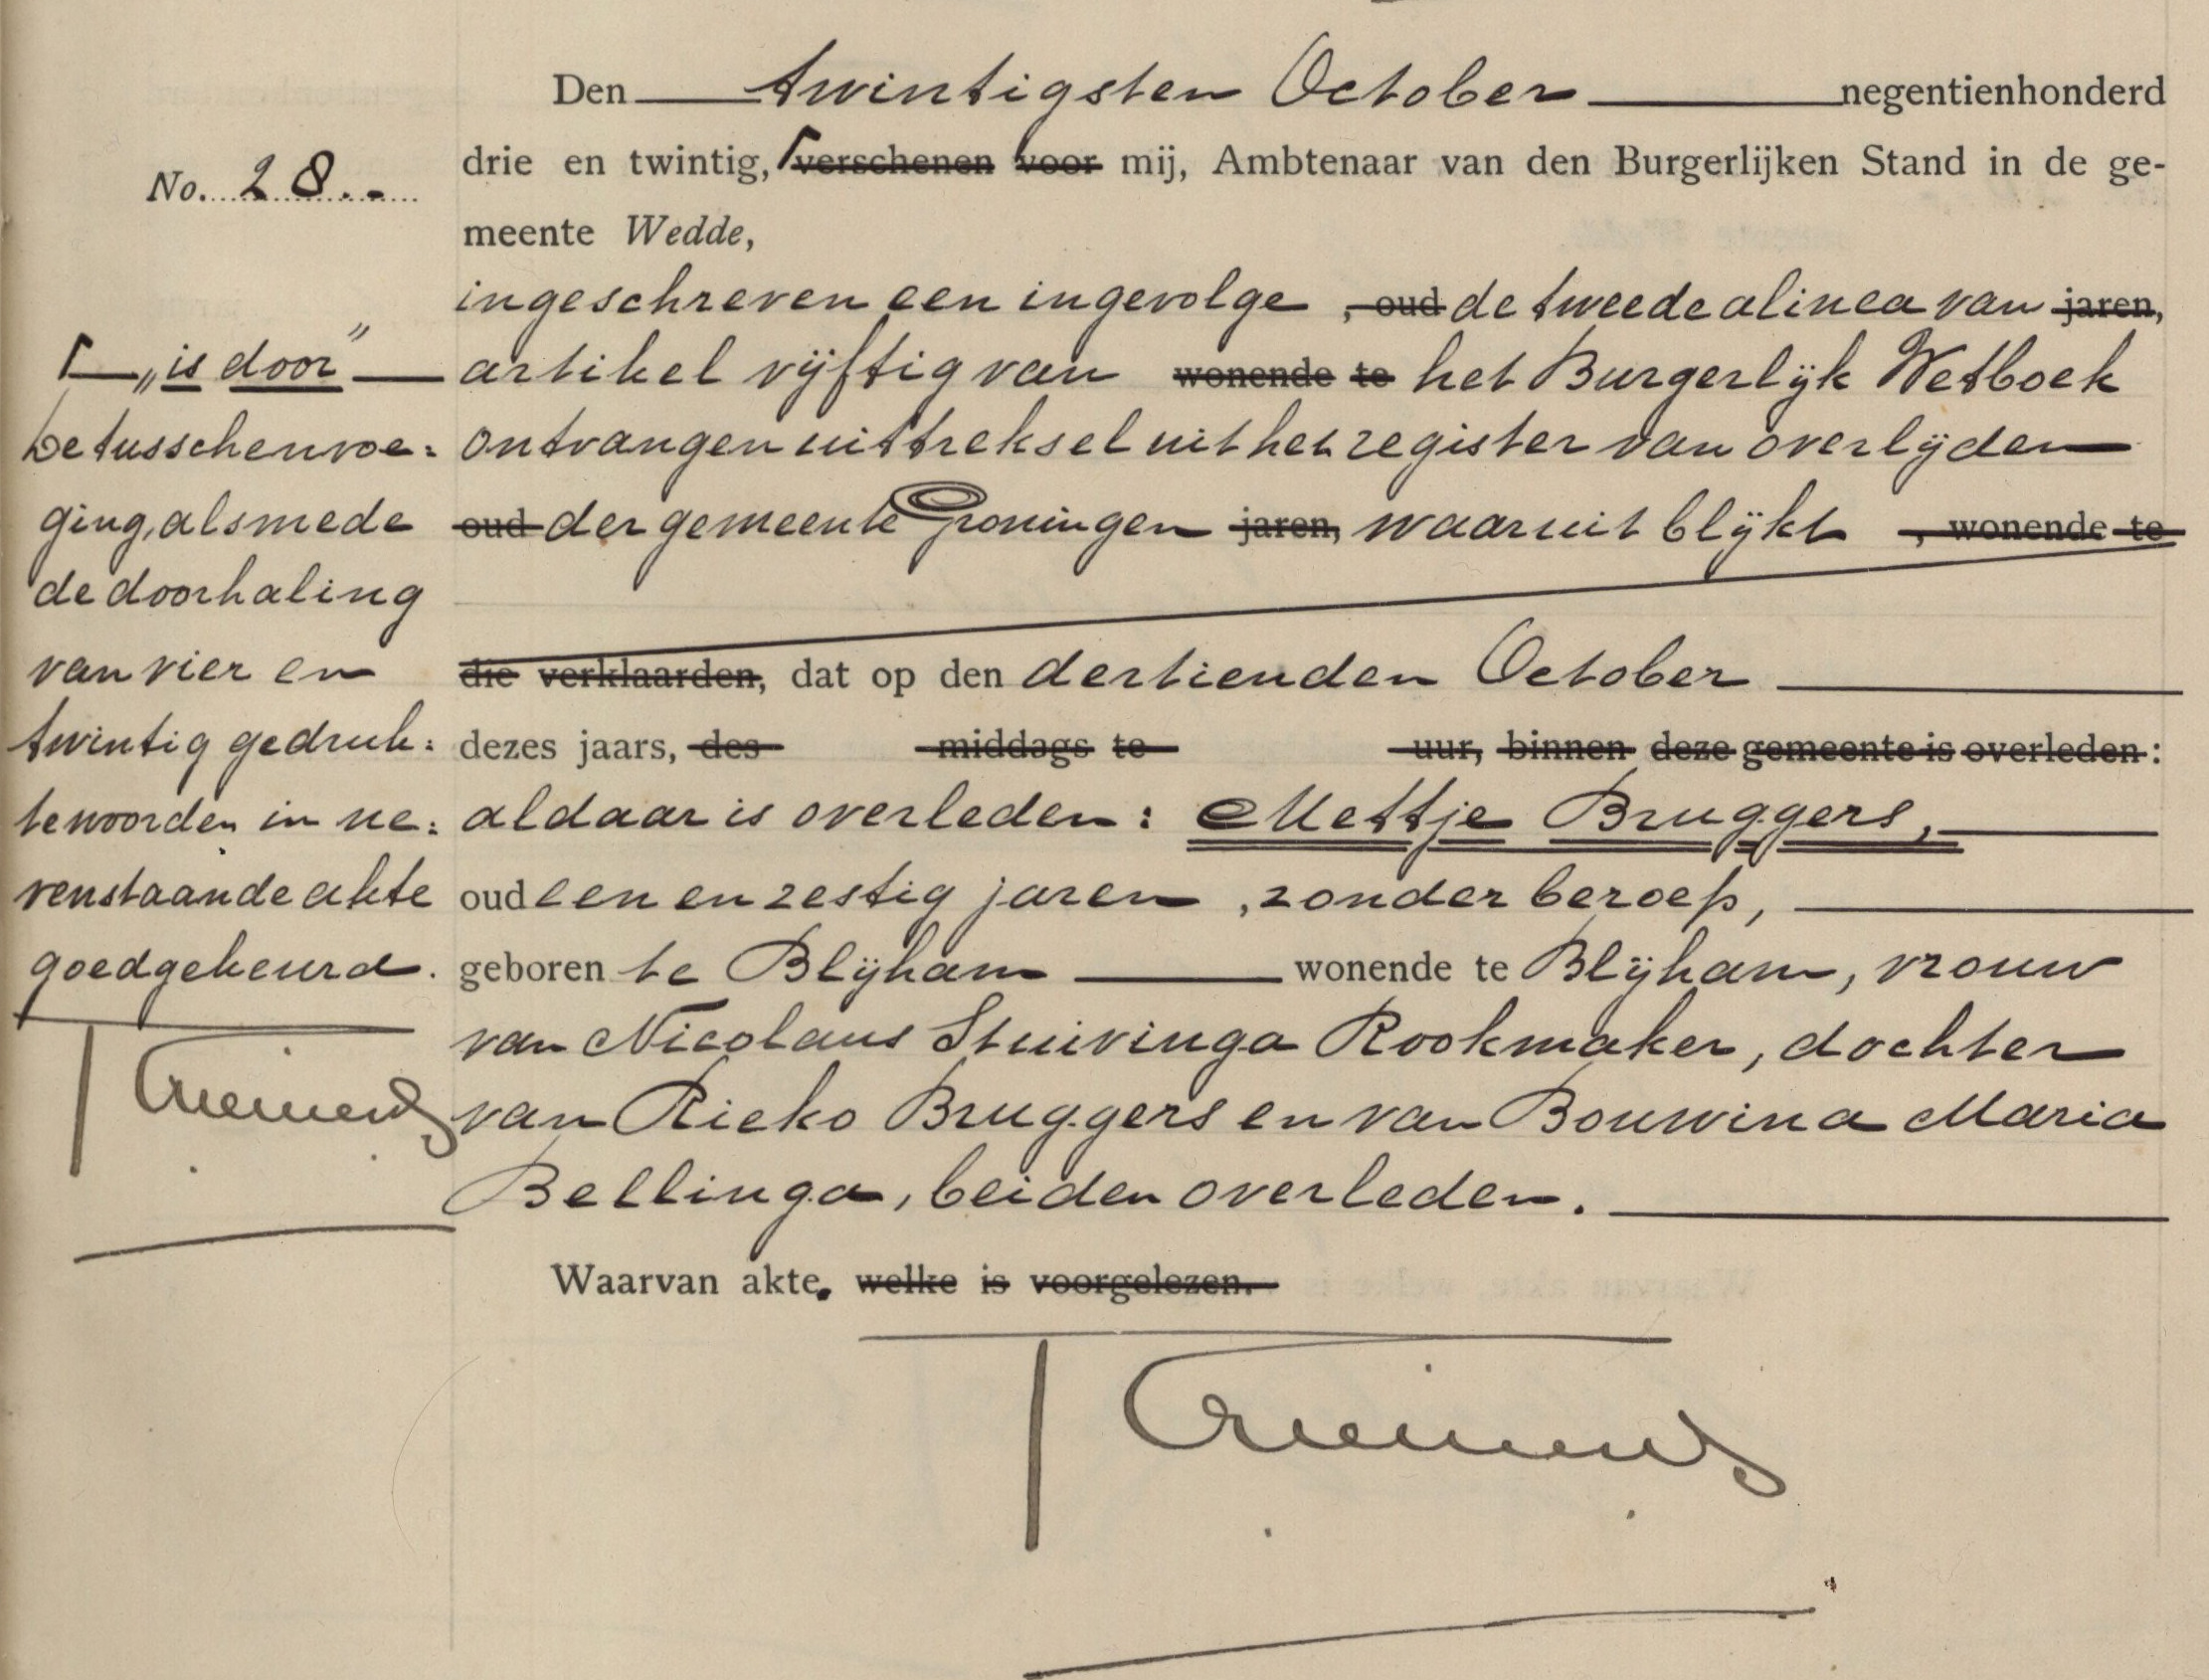 Den twintigsten October negentienhonderd
No. 28.-
drie en twintig, ⌈ verschenen voor mij, Ambtenaar van den Burgerlijken Stand in de ge-
meente Wedde,
ingeschreven een ingevolge , oud de tweede alinea van jaren,
artikel vijftig van wonende te het Burgerlijk Wetboek
ontvangen uittreksel uit het register van overlijden
oud der gemeente Groningen jaren, waaruit blijkt , wonende te
die verklaarden, dat op den dertienden October
dezes jaars, des middags te uur, binnen deze gemeente is overleden:
aldaar is overleden: Mettje Bruggers,
oud een en zestig jaren, zonder beroep,
geboren te Blijham wonende te Blijham, vrouw
van Nicolaus Stuivinga Rookmaker, dochter
van Rieko Bruggers en van Bouwina Maria
Bellinga, beiden overleden.
Waarvan akte. welke is voorgelezen.
⌈ „is door”
De tusschenvoe=
ging, alsmede
de doorhaling
van vier en
twintig gedruk=
te woorden in ne=
venstaande akte
goedgekeurd.